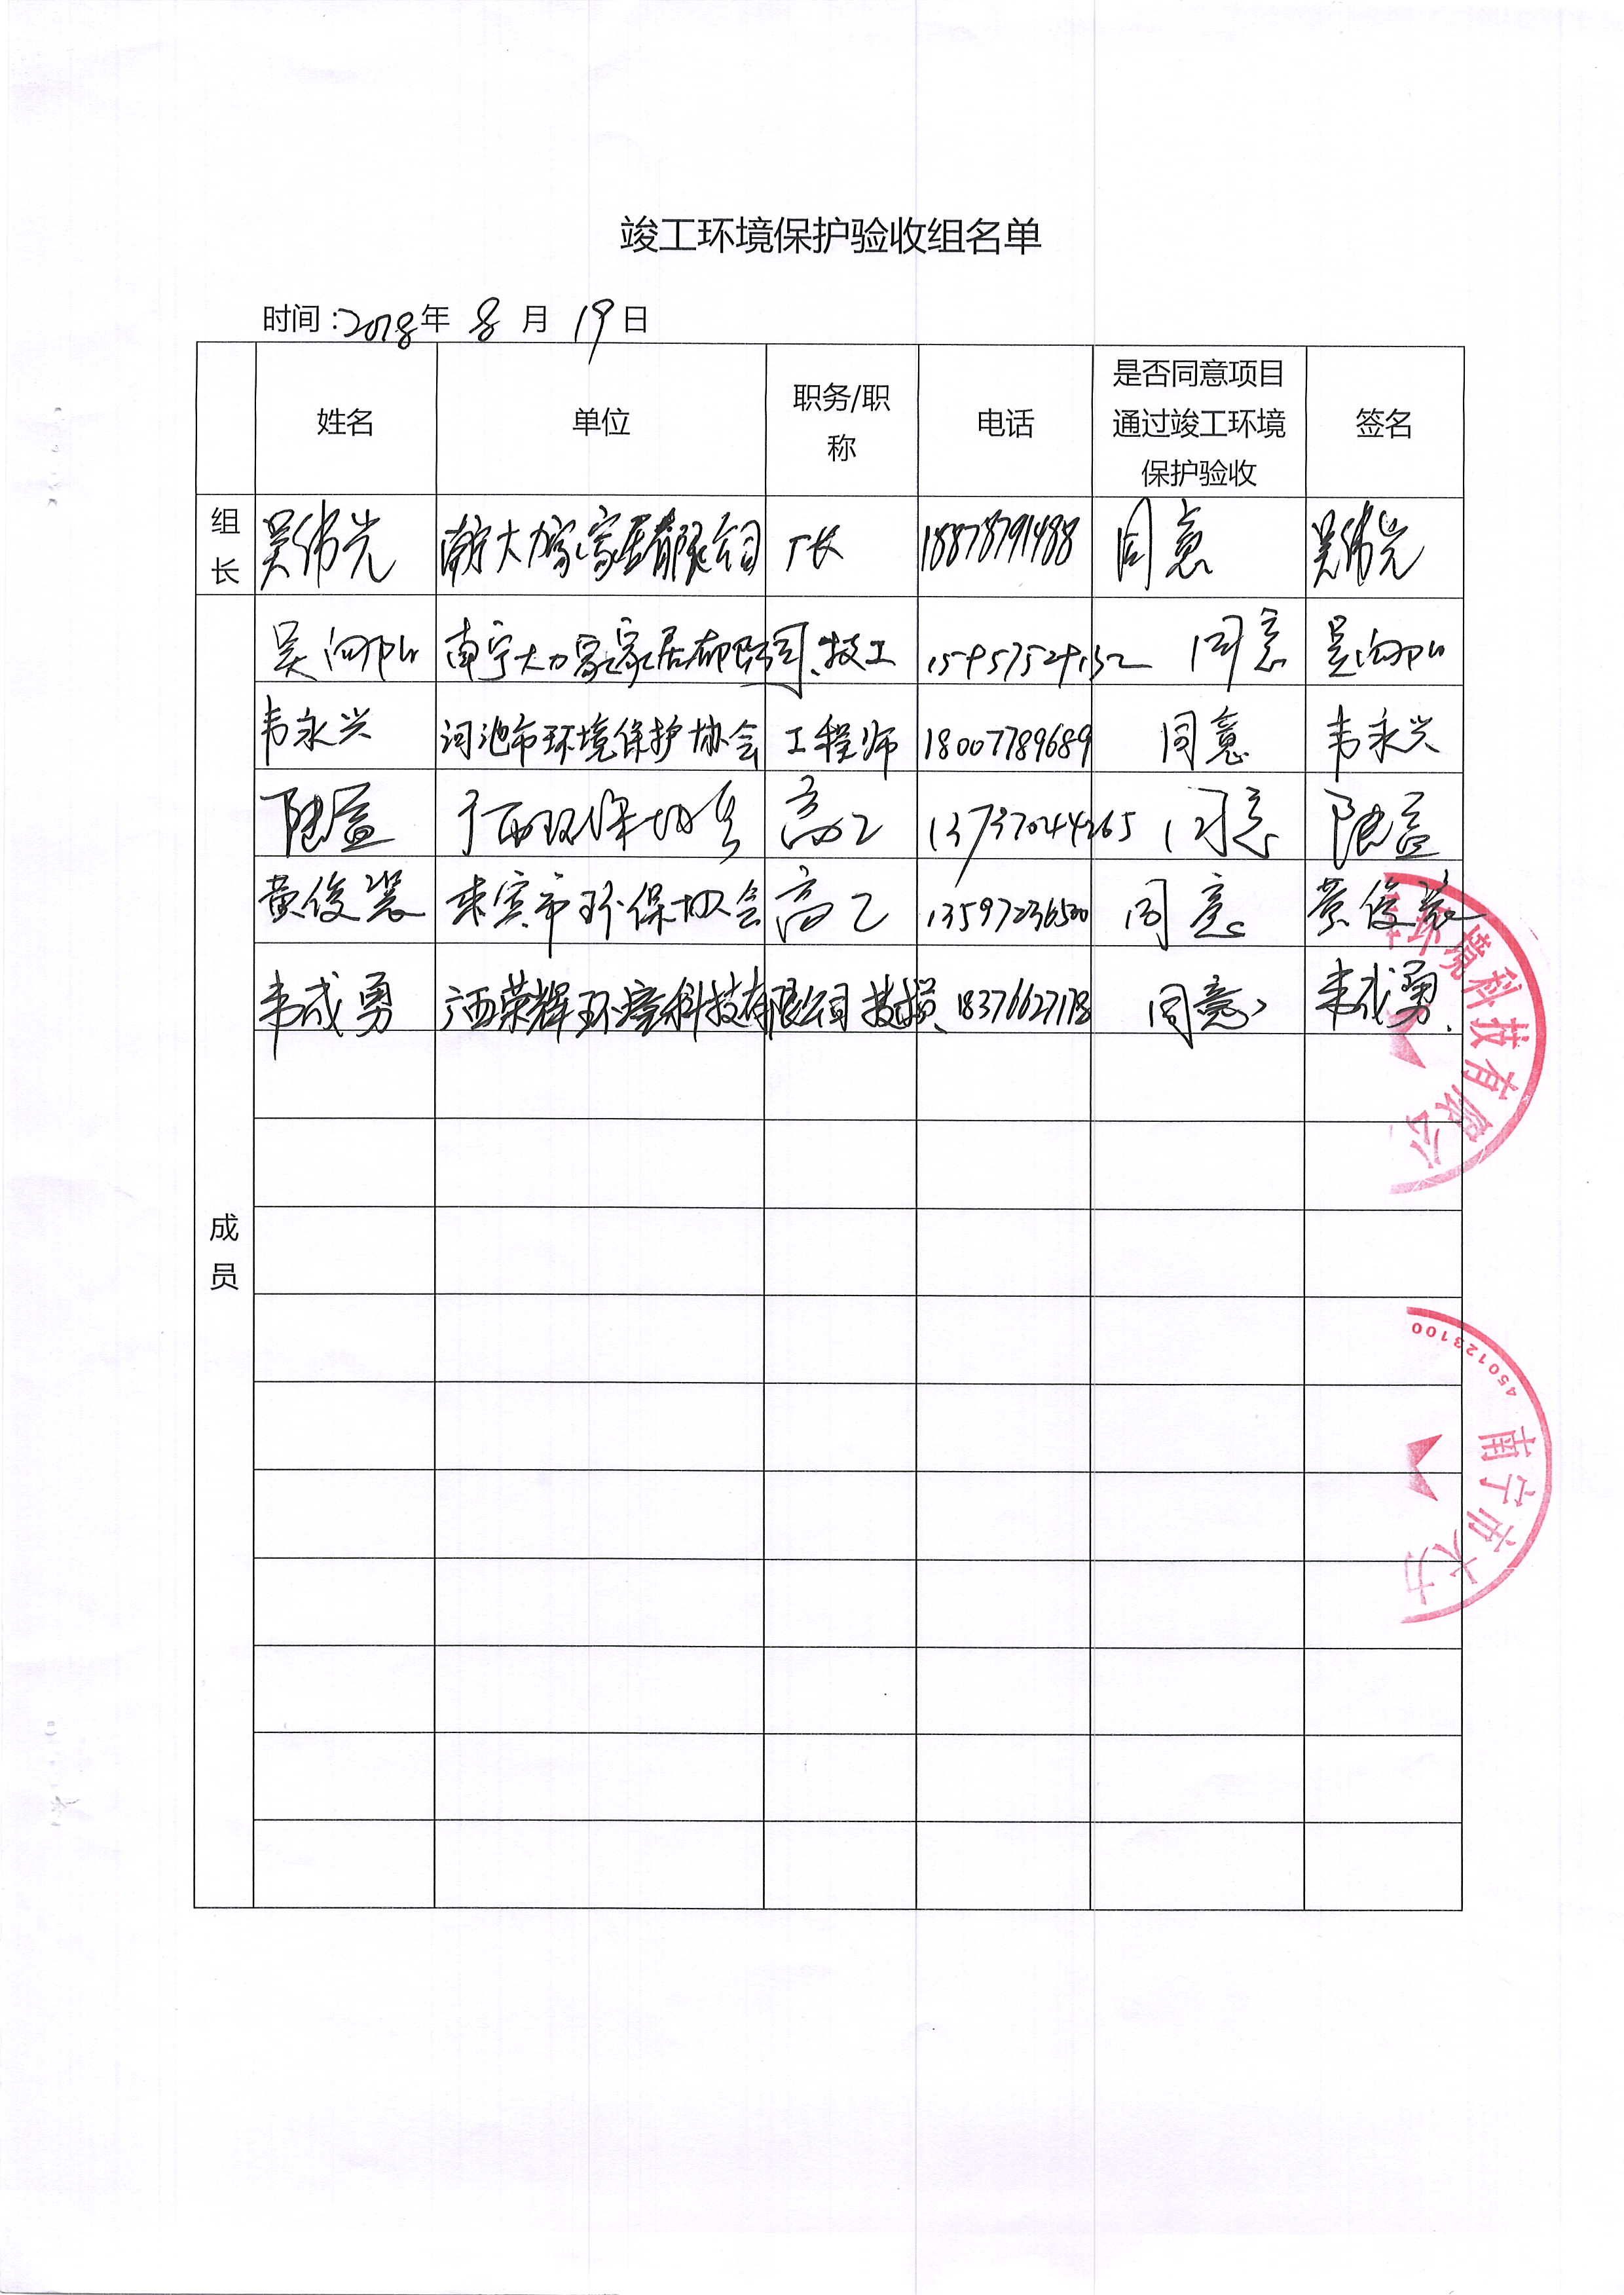 竣工环境保护验收组名单
时间：2018年 8 月 19 日
姓名 单位 职务/职称 电话 是否同意项目通过竣工环境保护验收 签名
组长 吴伟光 南宁大力家家居有限公司 厂长 18878791488 同意 吴伟光
成员
吴 南宁大力家家居有限公司 技工 同意 吴
韦永兴 河池市环境保护协会 工程师 18007789689 同意 韦永兴
陆益 广西环保协会 高工 13737044265 同意 陆益
黄俊 来宾市环保协会 高工 13597236500 同意 黄俊
韦成勇 广西荣辉环境科技有限公司 技术员 同意 韦成勇
环境科技有限公
450123100
南宁市大力